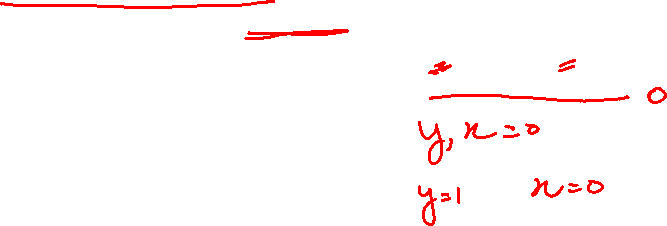 0
y, x = 0
y=1 x=0